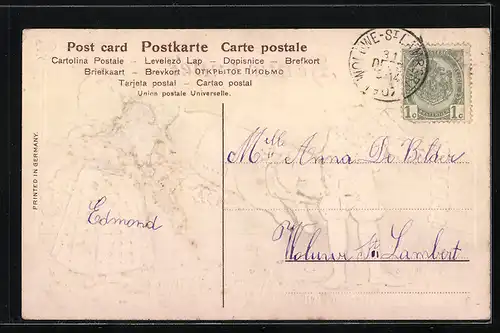 Post card Postkarte Carte postale
Cartolina Postale – Levelező Lap – Dopisnice – Brefkort
Briefkaart – Brevkort – ОТКРЫТОЕ ПИСЬМО
Tarjeta postal – Cartao postal
Union postale Universelle.
WOLUWE-ST LAMBERT
31
14
1907
1c 1c
PRINTED IN GERMANY.
Mlle Anna De Bilder
Edmond
Woluwe St Lambert